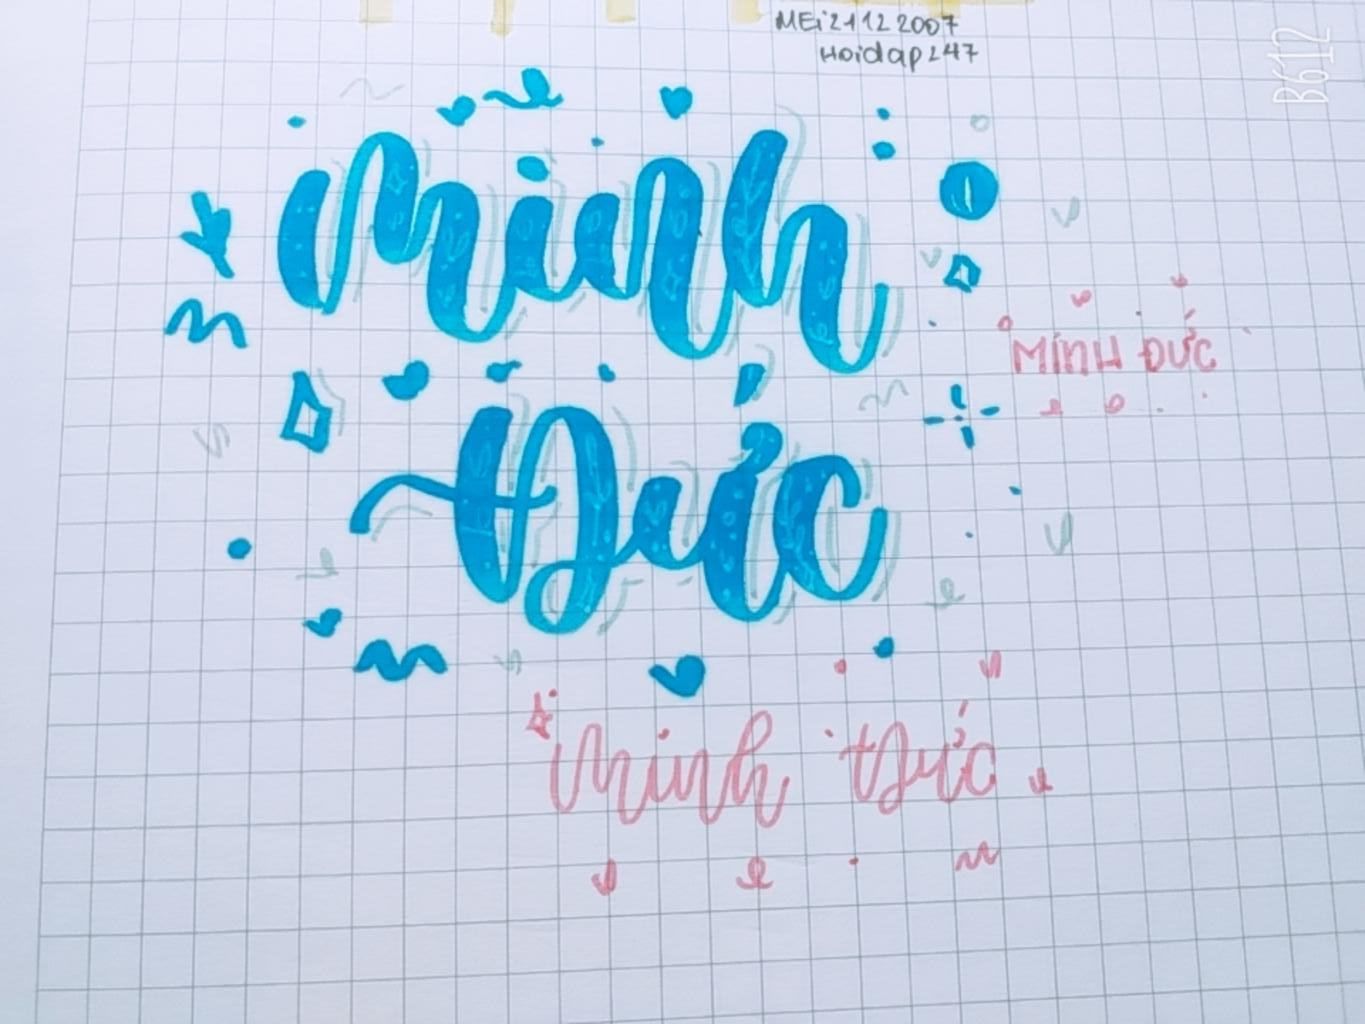 MEi21122007
Hoidap247
B612
Minh
Đức
MINH ĐỨC
Minh Đức